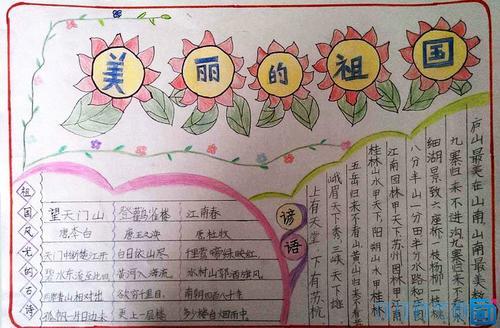 美丽的祖国
祖国风光的古诗
望天门山
唐李白
天门中断楚江开
碧水东流至此回
两岸青山相对出
孤帆一片日边来
登鹳雀楼
唐王之涣
白日依山尽
黄河入海流
欲穷千里目
更上一层楼
江南春
唐杜牧
千里莺啼绿映红
水村山郭酒旗风
南朝四百八十寺
多少楼台烟雨中
谚语
上有天堂,下有苏杭
峨眉天下秀三峡天下雄
五岳归来不看山黄山归来不看岳
桂林山水甲天下,阳朔山水甲桂林
江南园林甲天下,苏州园林甲江南
八分半山一分田半分水路和庄园
细湖景致六座桥一枝杨柳一枝桃
九寨归来不进沟九寨归来不
庐山最美在庐山最美和